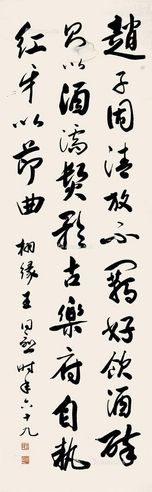 趙子固清放不羈好飲酒醉
則以酒濡髮歌古樂府自執
紅牙以節曲 栩緣王同愈時年六十九